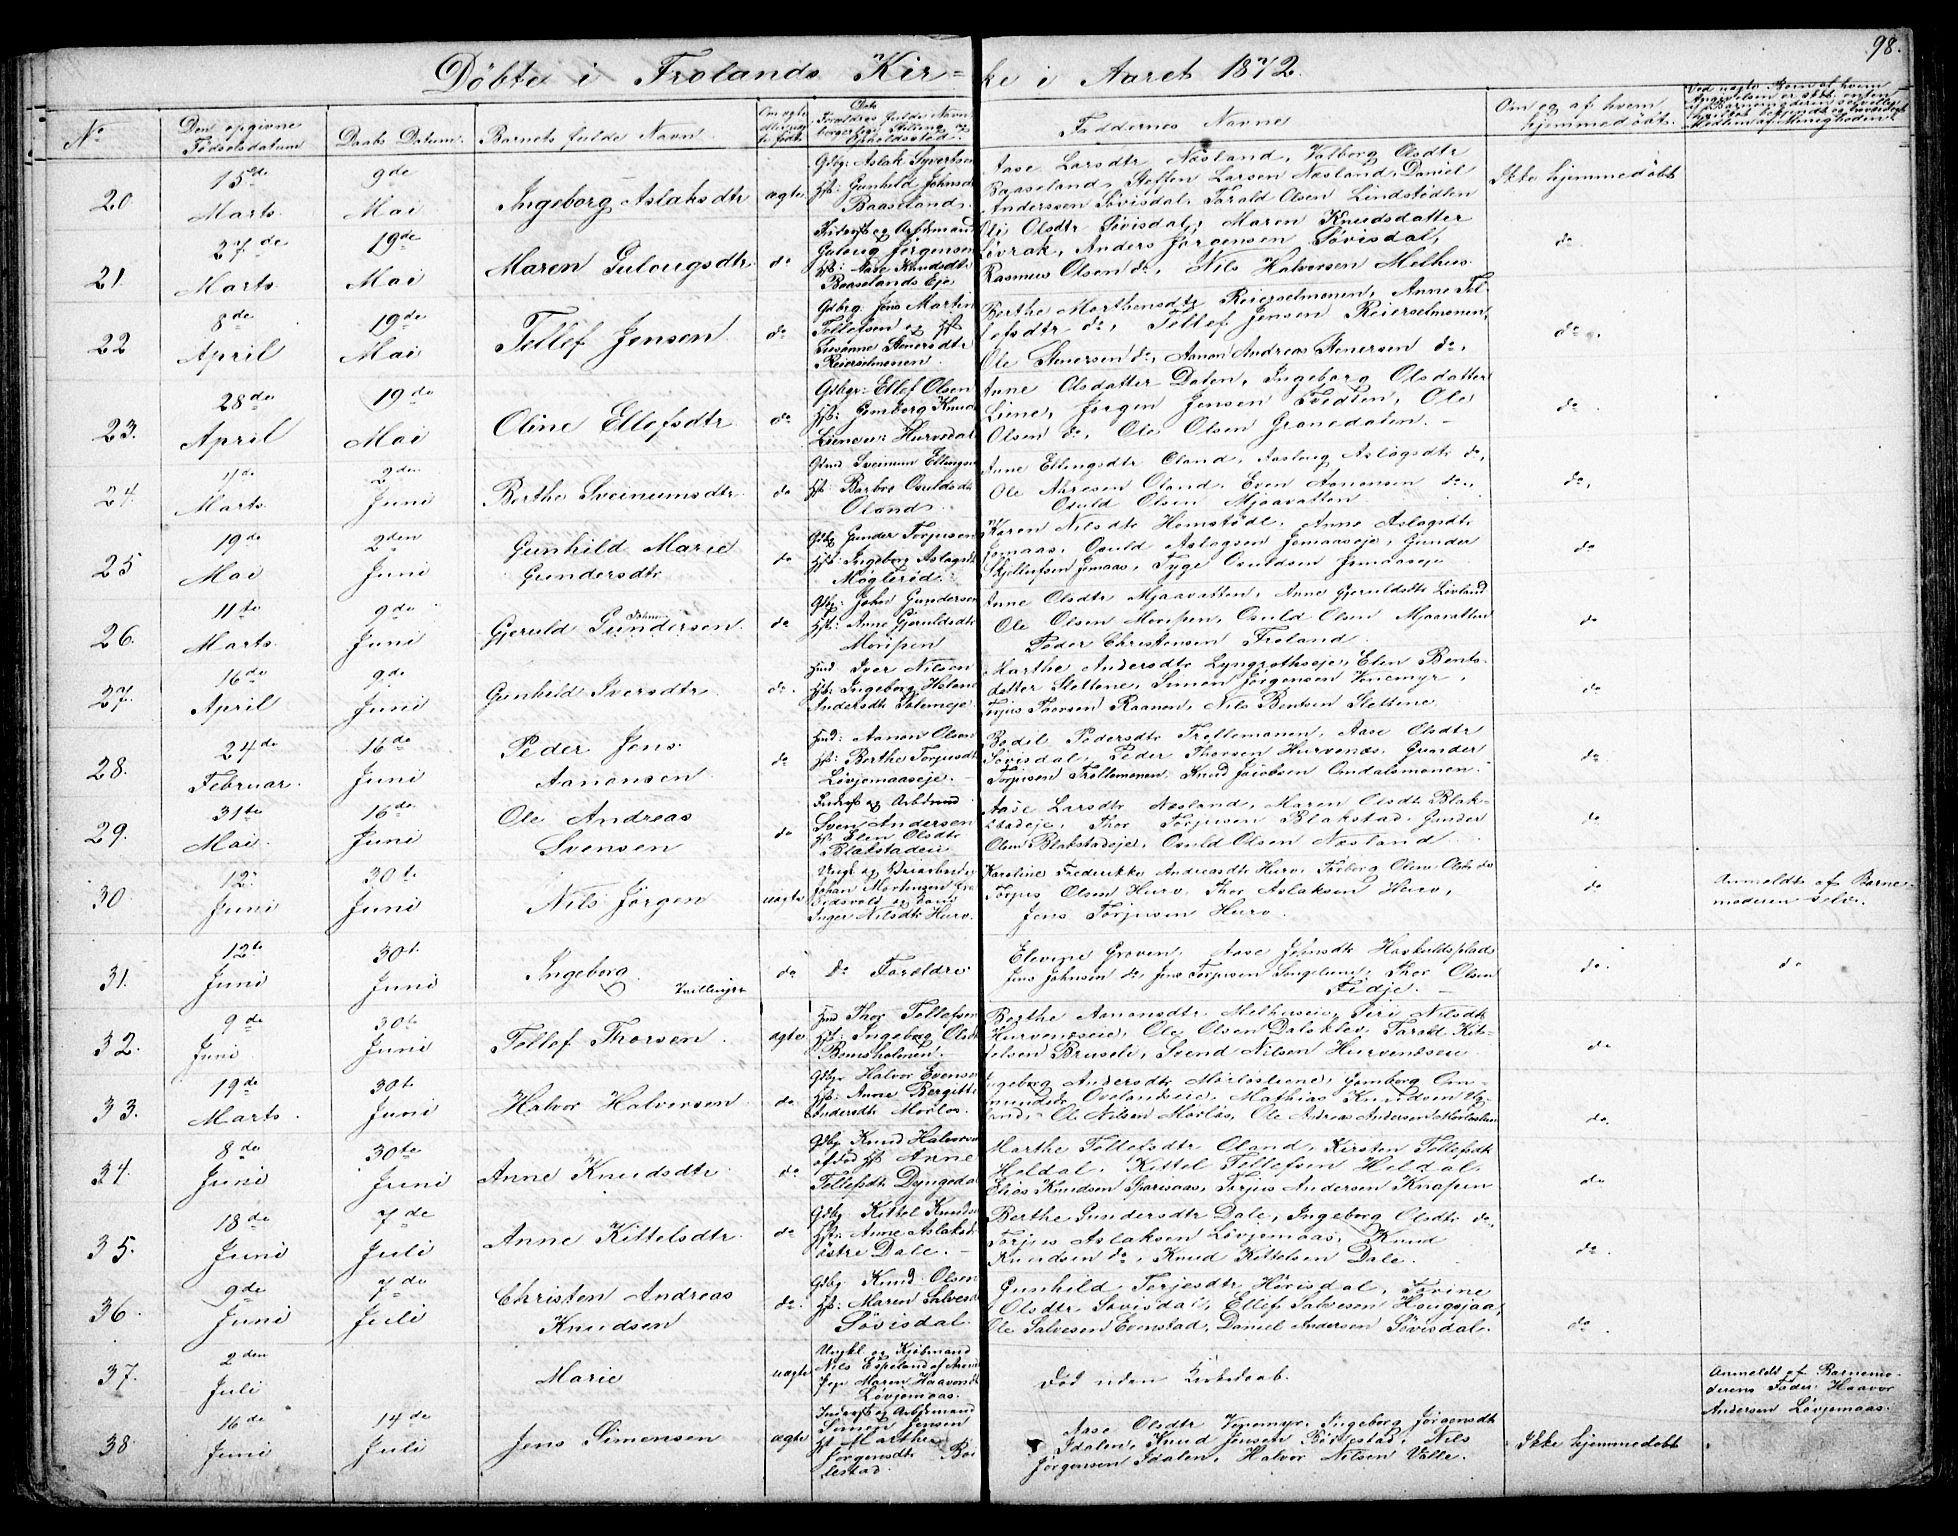 98.
Döbte i Frolands Kir=ke i Aaret 1872.
No
Den opgivne Födselsdatum
Daabs Datum.
Barnets fulde Navn.
Faddernes Navne
Om og af hvem hjemmedöbt.
20 15de Marts. 9de Mai Ingeborg Aslaksdtr ægte
Gbg: Aslak Syvertsen
Hst: Gunhild Johnsd
Baaseland.
Aase Larsdtr Næsland, Valborg Olsdtr
Baaseland, Steffen Larsen Næsland, Daniel
Anderssen Sövisdal, Tarald Olsen Lindstödlen
Ikke hjemmedöbt
21. 27de Marts 19de Mai Maren Gulougsdtr do
Inderst og Arbmand
Guloug Jörgensen
Hst: Aase Knudsdtr
Baaselands Eje
Olsdtr Sövisdal, Maren Knudsdatter
Lövrak, Anders Jörgensen Sövisdal,
Rasmus Olsen do, Nils Halvorsen Melhus.
do
22 8de April 19de Mai Tellef Jensen do
Gdbrg Jens Martin
Tellefsen og Hst
Stenersdtr
Reierselmonen.
Berthe Morthensdtr Reierselmonen, Anne Tel-
lefsdtr do, Tellef Jensen Reierselmonen,
Ole Stenersen do, Aanon Andreas Stenersen do,
do,
23. 28de April 19de Mai Oline Ellefsdtr do
Gdbgr: Ellef Olsen
Hst: Gunborg Knud
Hurvedal
Anne Olsdatter Dalen, Ingeborg Olsdatter
Liene, Jörgen Jensen Tvedten, Ole
Olsen do, Ole Olsen Gronedalen.
do.
24. Marts 2den Juni Berthe Sveinumsdtr do
Gbmd Sveinum Ellingsen
Hst: Barbro Osuldsdr
Oland.
Anne Ellingsdtr Oland, Aasloug Aslagsdtr do,
Ole Aaresen Oland, Even Aanonsen do,
Osuld Olsen Mjaavatten
do,
25 19de Mai 2den Juni Gunhild Marie Gundersdtr do
Gbg Gunder Torjusen
Hst: Ingeborg Aslagsd
Möglerød
Karen Nilsdtr Homstödl. Anne Aslagsdtr
Jomaas, Osuld Aslagsen Jomaaseje, Gunder
Jomaas, Tyge Osuldsen Jomaaseje
do
26. 11te Marts. 9de Juni Gjeruld Gundersen. Johns do
Gbg: John Gundersen
Hst: Anne Gjeruldsdtr
Moripen
Anne Olsdtr Mjaavatten, Anne Gjeruldsdtr Lövland
Ole Olsen Moripen, Osuld Olsen Mjaavatten
Peder Christensen Froland.
do
27. 16de April 9de Juni Gunhild Iversdtr do.
Hmd. Iver Nilsen
Hst: Ingeborg Helene
Andersdtr
Marthe Andersdtr Lyngrothseje, Elen Bents-
datter Slettene, Simon Jörgensen Venemyr,
Torjus Raanen, Nils Bentsen Slettene.
do
28. 24de Februar. 16de Juni Peder Jens Aanonsen do
Hmd: Aanon Olsen
Hst: Berthe Torjusdt
Lövjomaaseje.
Bodil Pedersdtr Trellemonen, Aase Olsdtr
Sövisdal, Peder Thorsen Hurvenæs, Gunder
Torjusen Trellemonen, Knud Jacobsen Omdalsmonen.
do
29. 31te Mai. 16de Juni Ole Andreas Svensen do
Inderst og Arbdmnd
Sven Andersen
Hst Elen Olsdtr
Blakstadeie
Aase Larsdtr Næsland, Maren Olsdtr Blak-
stadeje, Thor Torjusen Blakstad. Gunder
Olsen Blakstadeje, Osuld Olsen Næsland
do
30 12. Juni 30te Juni Nils Jörgen uægte
Ungk og Veiarbeider
Johan Mortensen fra
Eidsvold og
Inger Nilsdtr Hurv.
Karoline Frederikke Andreasdtr Hurv, Torborg Olsdtr do
Torjus Olsen Hurv, Thor Aslaksen Hurv,
Jens Torjusen Hurv.
do
Anmeldt af Barne-
moderen selv.
31. 12te Juni 30t Juni Ingeborg Tvillinger do
do Forældre
Elevine Groven, Aase Johnsdtr Havkoldsplads
Jens Johnsen do, Jens Torjusen, Thor Olsen
Tedje.
do. do
32. 9de Juni 30te Juni Tellef Thorsen. ægte
Hmd Thor Tellefsen
Hst: Ingeborg Olsdtr
Bomsholmen.
Berthe Aanonsdtr Melhuseie, Siri Nilsdtr
Hurvenæseie, Ole Olsen Dalsklev, Tarald Kit-
telsen Bruseli, Svend Nilsen Hurvenæseie
do
33. 19de Marts. 30te Juni Halvor Halvorsen do
Gdbgr Halvor Evensen
Hst: Anne Bergitte
Andersdtr Mörlös.
Ingeborg Andersdtr Mörlösliene, Gunborg Om-
mundsdtr Ovelandseie, Mathias Knudsen Ug-
land, Ole Nilsen Mörlös, Ole Andreas Andersen Mörlöslien
do.
34. 8de Juni 30te Juni Anne Knudsdtr do
Gdbg Knud Halvorsen
Hst Anne
Tellefsdtr Dyngedal
Marthe Tellefsdtr Oland, Kirsten Tellefsdtr
Heldal. Kittel Tellefsen Heldal.
Elias Knudsen, Terjus Andersen Knapen
do
35. 18de Juni 7de Juli Anne Kittelsdtr. do
Gdbg. Kittel Knudsen
Hst: Anne Aslaksd
östre Dale.
Berthe Gundersdtr Dale, Ingeborg Olsdtr do,
Torjus Aslaksen Lövjomaas, Knud
Knudsen do, Knud Kittelsen Dale.
do.
36. 9de Juni 7de Juli Christen Andreas Knudsen do.
Gdbg Knud Olsen
Hst: Maren Salvesd
Sövisdal
Gunhild Terjesdtr Hövisdal, Torine
Olsdtr Sövisdal, Ellef Salvesen Haugsjaa,
Ole Salvesen Evenstad, Daniel Andersen Sövisdal.
do.
37. 2den Juli Marie uægte
Ungkl. og Kjöbmand
Nils Espeland af Arendal
Pige Maren Haavorsd
Lövjomaas.
död uden Kirkedaab.
Anmeldt af Barnemo-
derens Fader Haavor
Andersen Lövjomaas.
38. 16de Juni 14de Juli Jens Simensen ægte
Inderst og Arbdsmand
Simen Jensen
Hst Marthe
Jörgensdtr Bör-
lestad.
Aase Olsdtr Venemyr, Ingeborg Jörgensdtr
Idalen, Knud Jensen Börlestad, Nils
Jörgensen Idalen, Halvor Nilsen Valle.
Ikke hjemmedöbt